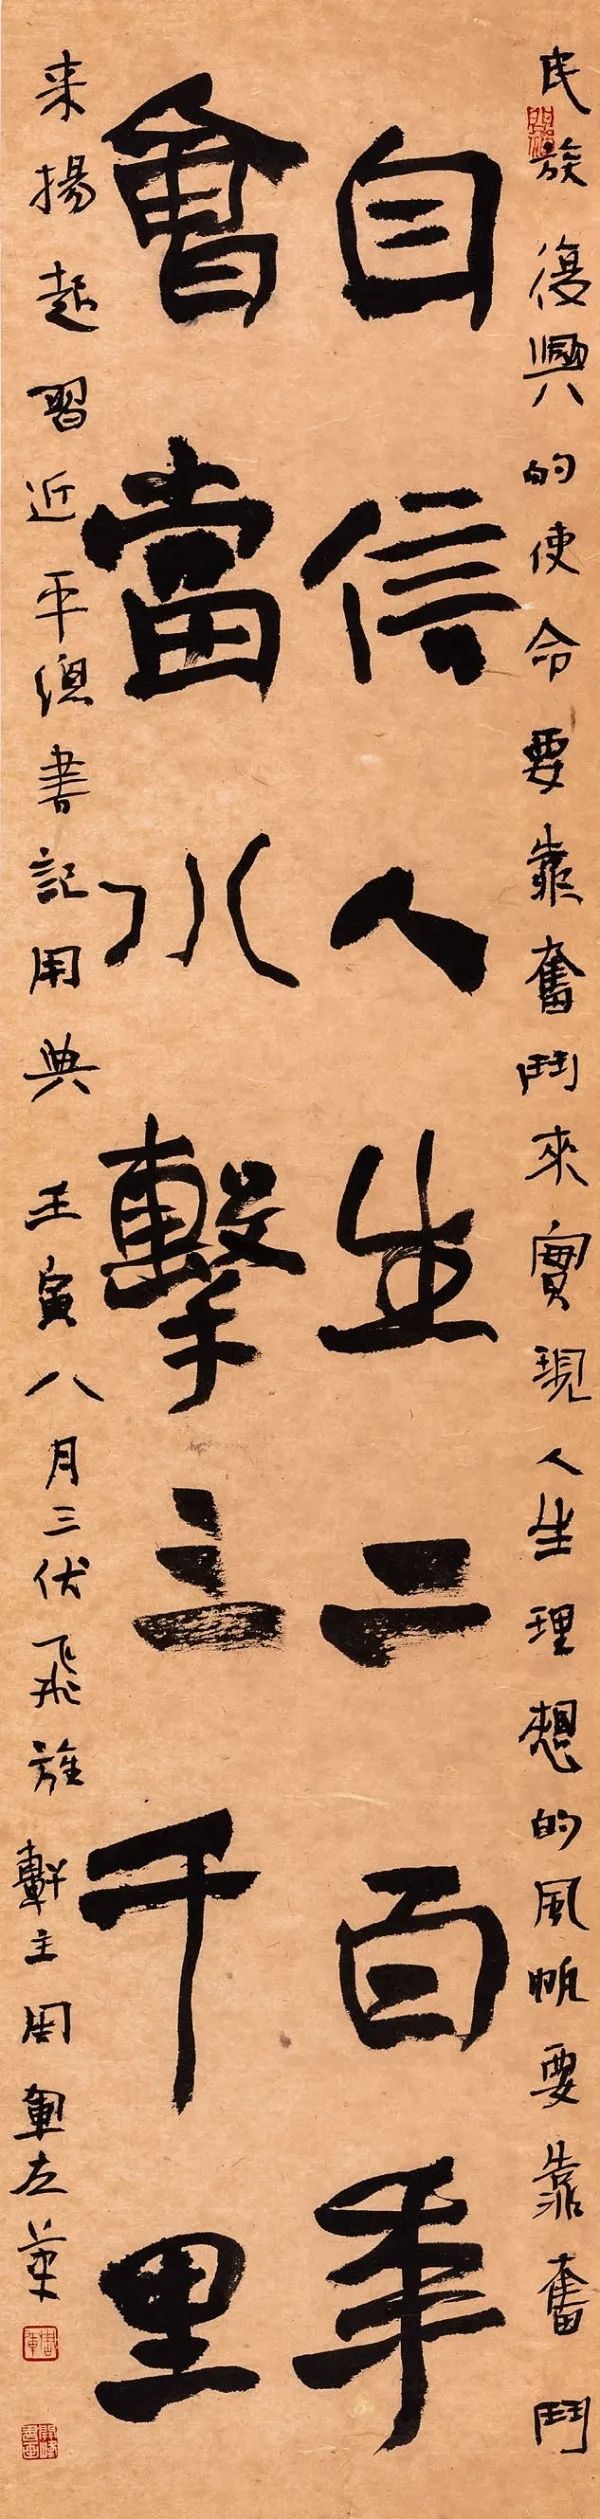 民族復興的使命要靠奮鬥來實現人生理想的風帆要靠奮鬥
自信人生二百年
會當水擊三千里
来揚起習近平總書記用典 壬寅八月三伏飛軒主周軍左筆